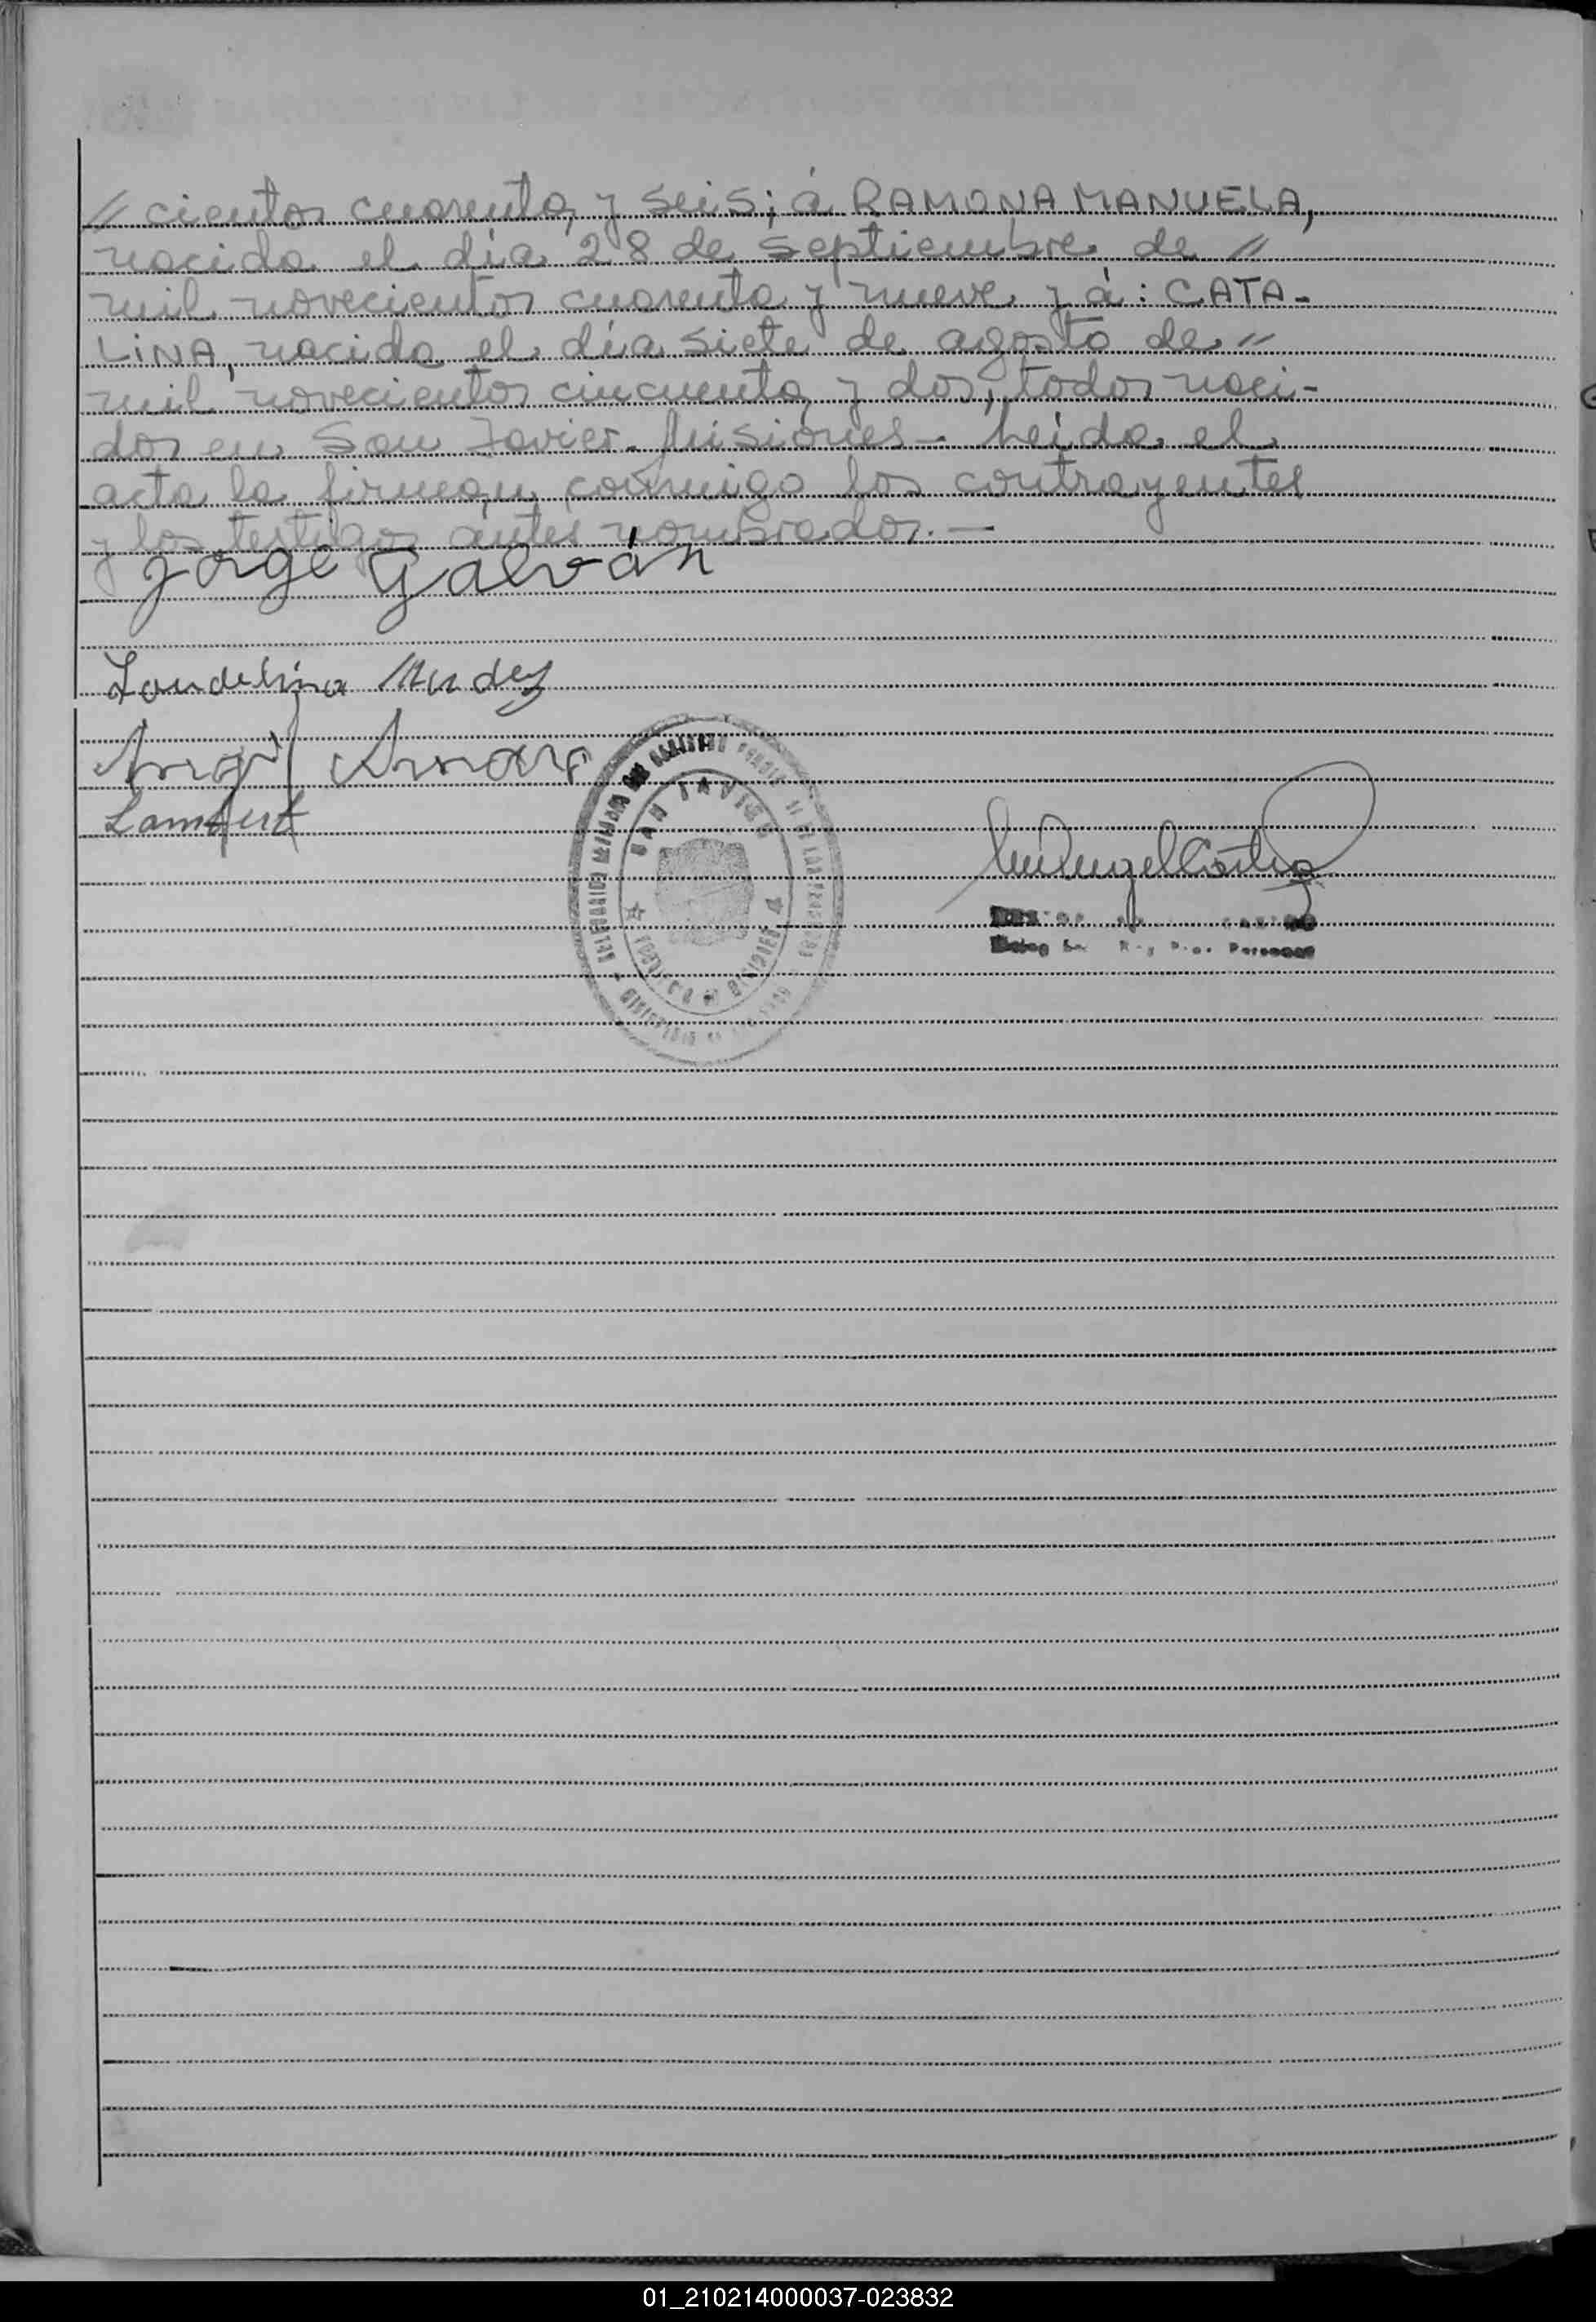 // cientos cuarenta y seis; á RAMONA MANUELA,
nacida el día 28 de septiembre de //
mil novecientos cuarenta y nueve y á: CATA-
LINA, nacida el día siete de agosto de //
mil novecientos cincuenta y dos, todos naci-
dos en San Javier. Misiones - Leída el
acta la firman conmigo los contrayentes
y los testigos antes nombrados. —
Jorge Galván
Landelina
Lambert
SAN JAVIER
MISIONES
Personas
01_210214000037-023832